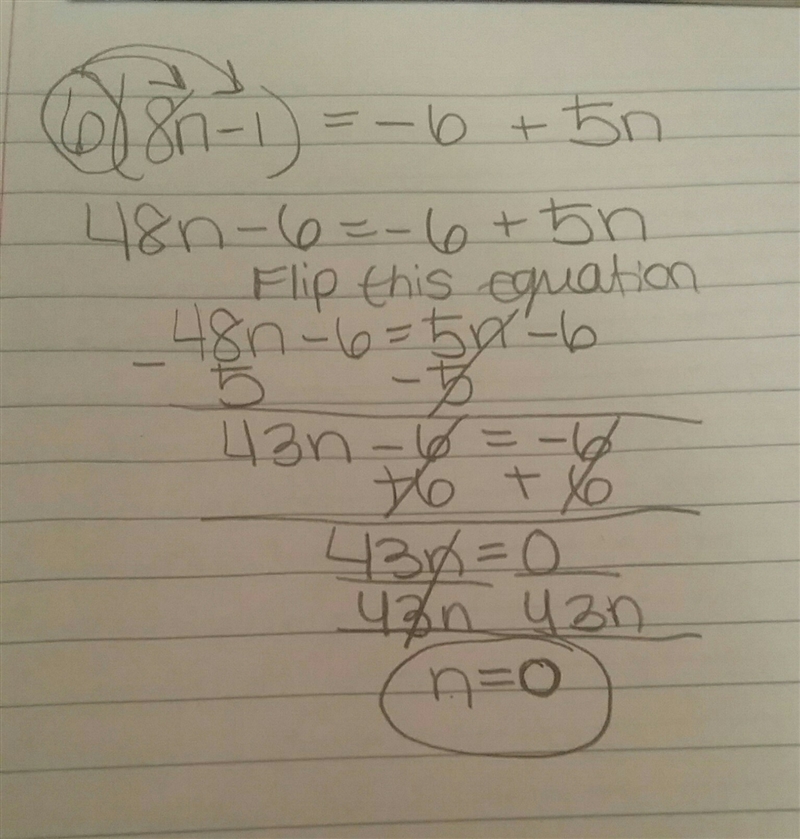 6(8n-1) = -6 + 5n
48n-6=-6+5n
Flip this equation
48n-6=5n-6
-5 -5
43n-6=-6
+6 +6
43n=0
43n 43n
n=0